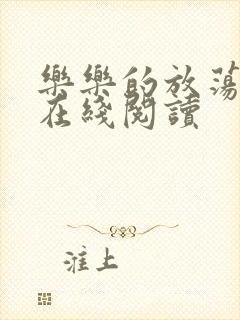 樂樂的放蕩
在綫閱讀
淮上